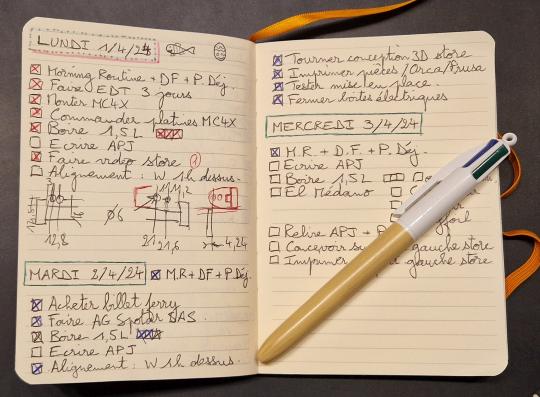 LUNDI 1/4/24
Morning Routine + DF + P. Déj.
Faire EDT 3 jours
Monter MC4X
Commander platines MC4X
Boire 1,5 L
Ecrire APJ
Faire vidéo store 1
Alignement : W 1h dessus.
11,2
Ø6
12,8
21
21,6
4,24
MARDI 2/4/24 M.R + DF + P. Déj
Acheter billet ferry
Faire AG Spotair SAS.
Boire 1,5 L
Ecrire APJ
Alignement : W 1h dessus.
Tourner conception 3D store
Imprimer pièces / Orca/Prusa
Tester mise en place.
Fermer boîtes électriques
MERCREDI 3/4/24
M.R. + D.F. + P. Déj.
Ecrire APJ
Boire 1,5 L
El Médano
foil
Relire APJ +
Concevoir gauche store
Imprimer gauche store